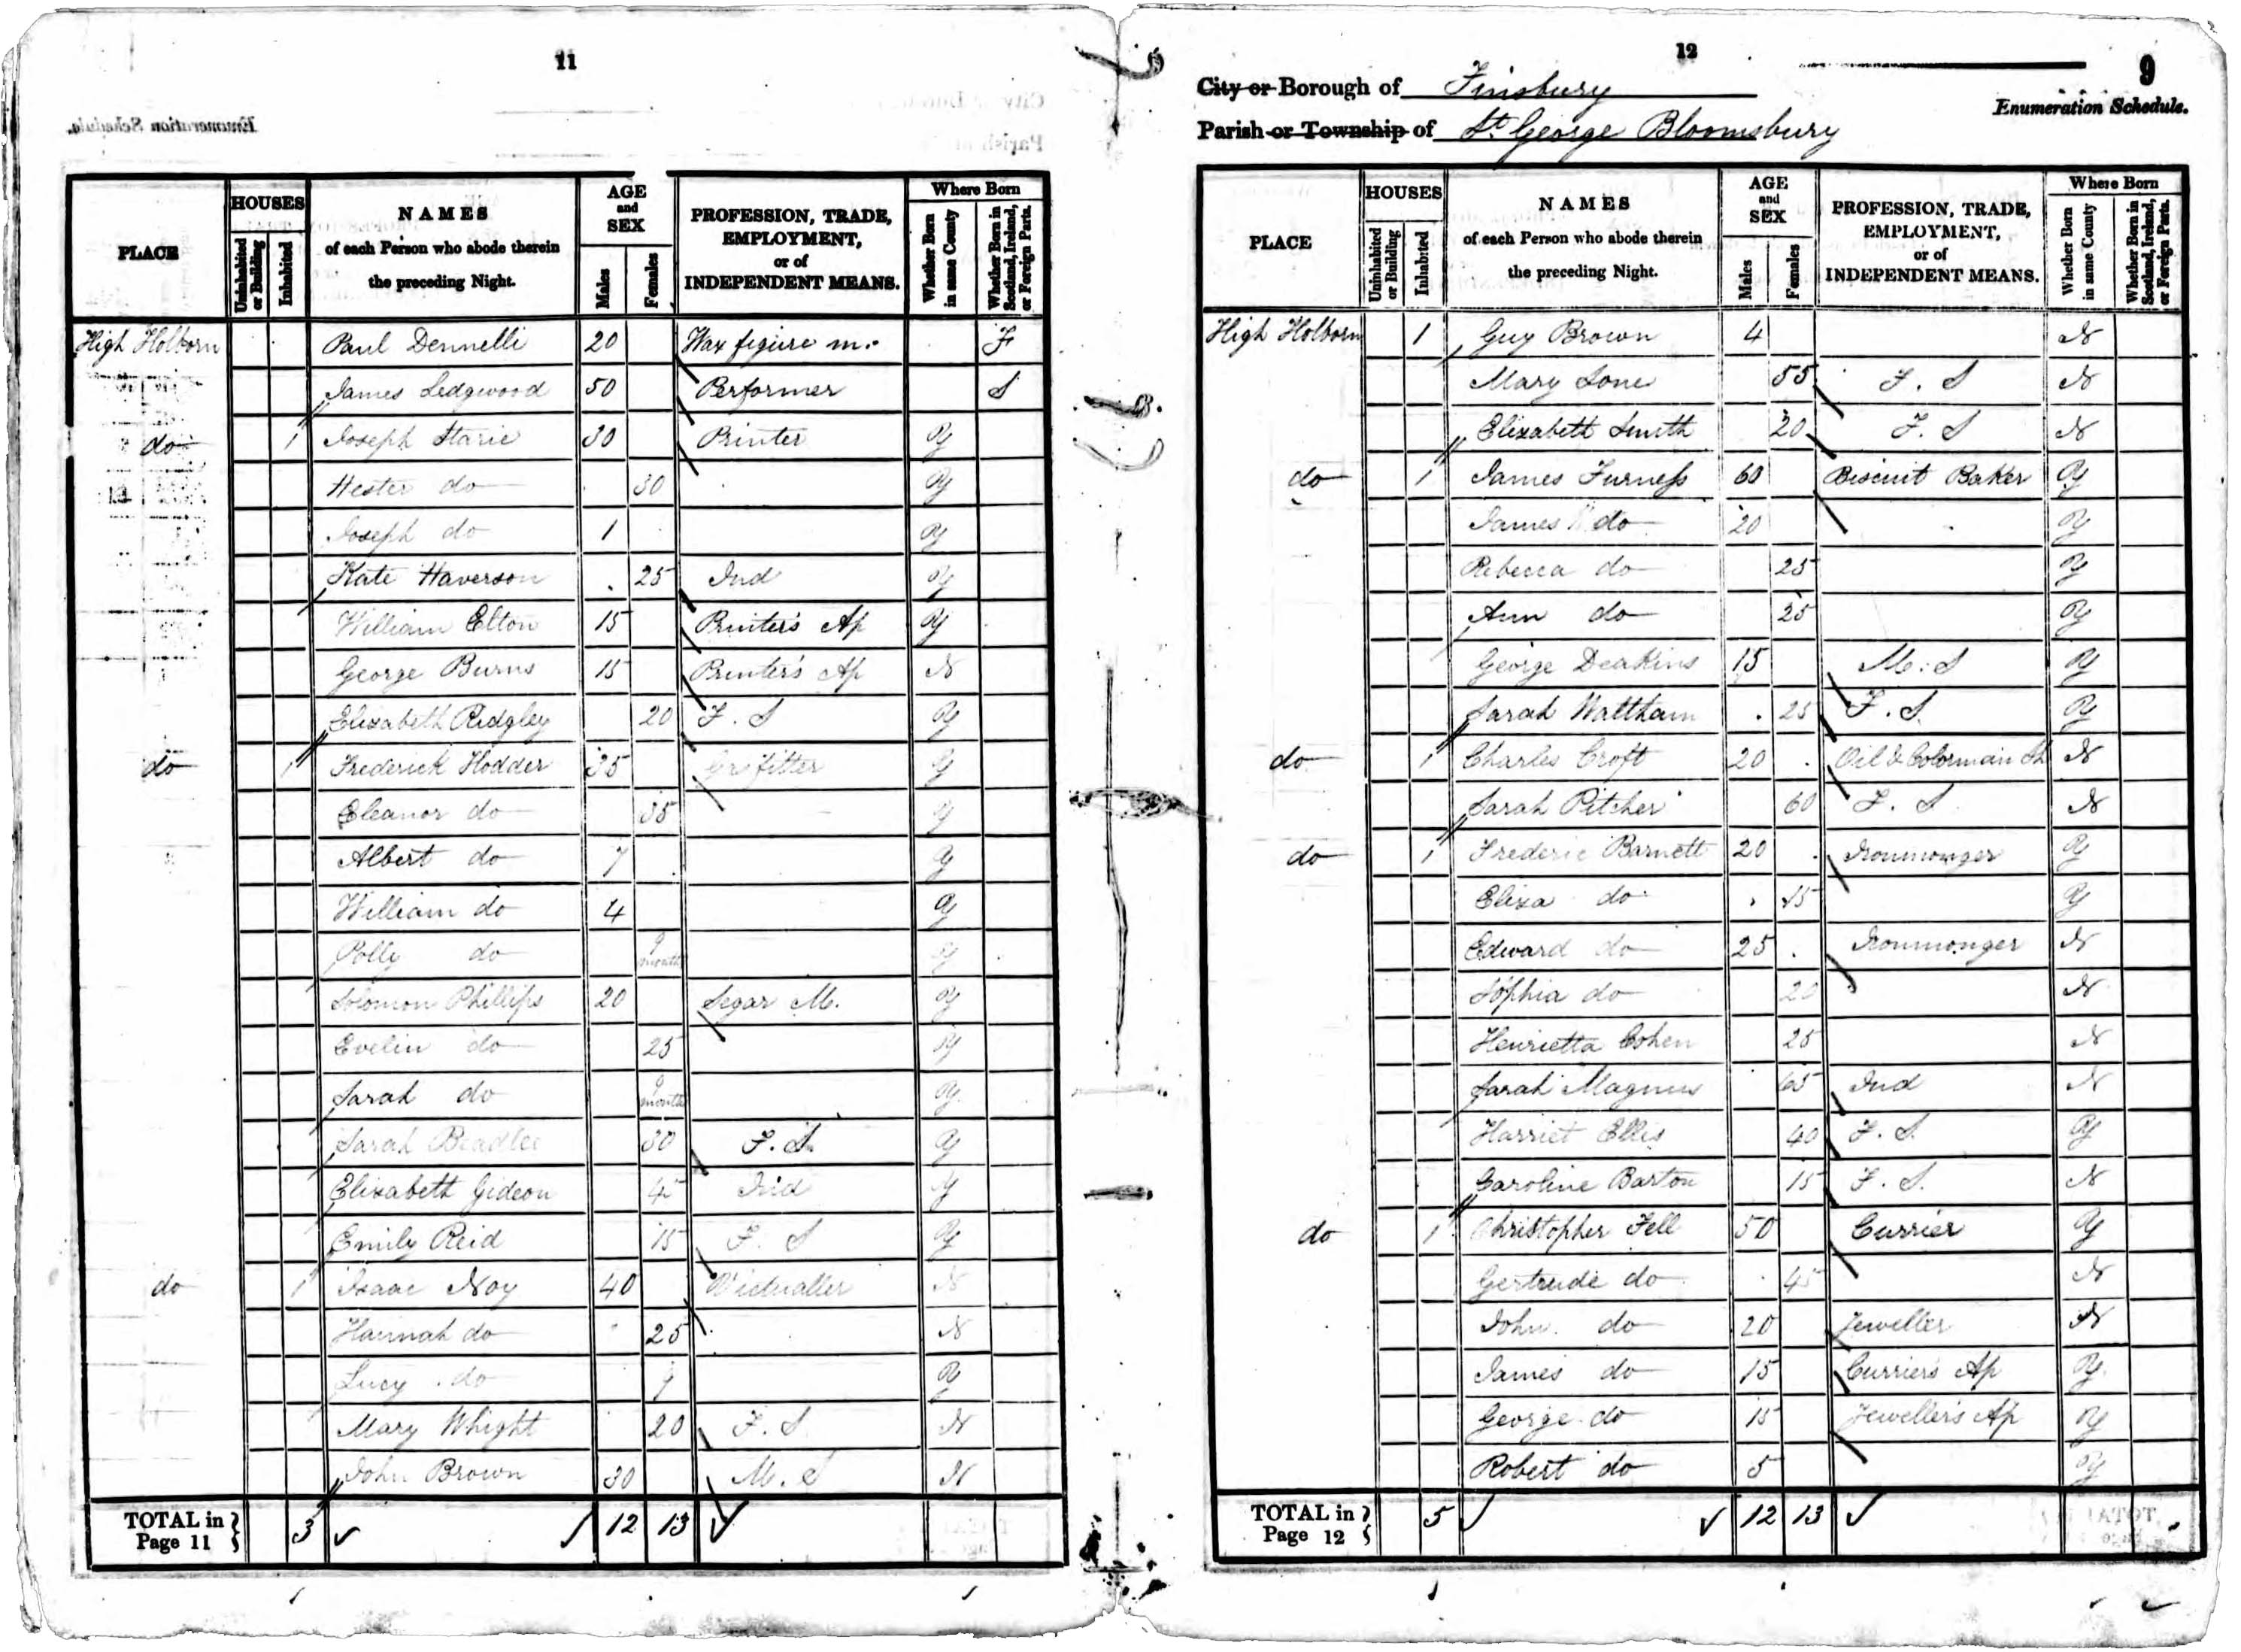 11
PLACE
HOUSES
Uninhabited or Building
Inhabited
NAMES
of each Person who abode therein
the preceding Night.
AGE
and
SEX
Males
Females
PROFESSION, TRADE,
EMPLOYMENT,
or of
INDEPENDENT MEANS.
Where Born
Whether Born in same County
Whether Born in Scotland, Ireland, or Foreign Parts.
High Holborn Paul Dennelli 20 Wax figure m. F
James Ledgwood 50 Performer S
do 1 Joseph Starie 30 Printer Y
Hester do 30 Y
Joseph do 1 Y
Kate Haverson 25 Ind Y
William Elton 15 Printer's Ap Y
George Burns 15 Printer's Ap N
Elizabeth Ridgley 20 F. S Y
do 1 Frederick Hodder 35 fitter Y
Eleanor do 35 Y
Albert do 7 Y
William do 4 Y
Polly do 9 month Y
Solomon Phillips 20 Segar M. Y
Evelin do 25 Y
Sarah do 9 month Y
Sarah Beadlee 30 F. S. Y
Elizabeth Gideon 45 Ind Y
Emily Reid 15 F. S Y
do 1 Isaac Noy 40 Victualler N
Hannah do 25 N
Lucy do 9 Y
Mary Whight 20 F. S. N
John Brown 30 M. S N
TOTAL in Page 11 } 3 12 13
12
9
City or Borough of Finsbury
Enumeration Schedule.
Parish or Township of St George Bloomsbury
PLACE
HOUSES
Uninhabited or Building
Inhabited
NAMES
of each Person who abode therein
the preceding Night.
AGE
and
SEX
Males
Females
PROFESSION, TRADE,
EMPLOYMENT,
or of
INDEPENDENT MEANS.
Where Born
Whether Born in same County
Whether Born in Scotland, Ireland, or Foreign Parts.
High Holborn 1 Guy Brown 4 N
Mary 55 F. S N
Elizabeth Smith 20 F. S N
do 1 James Furness 60 Biscuit Baker Y
James do 20 Y
Rebecca do 25 Y
Ann do 25 Y
George Deakins 15 M. S Y
Sarah Waltham 25 F. S. Y
do 1 Charles Croft 20 Oil & Colorman Sh N
Sarah Pitcher 60 F. S N
do 1 Frederic Barnett 20 Ironmonger Y
Eliza do 15 Y
Edward do 25 Ironmonger N
Sophia do 20 N
Henrietta Cohen 25 N
Sarah Magnus 65 Ind N
Harriet Ellis 40 F. S. Y
Caroline Barton 15 F. S. N
do 1 Christopher Fell 50 Currier Y
Gertrude do 45 N
John do 20 Jeweller N
James do 15 Currier's Ap Y
George do 15 Jeweller's Ap Y
Robert do 5 Y
TOTAL in Page 12 } 5 12 13